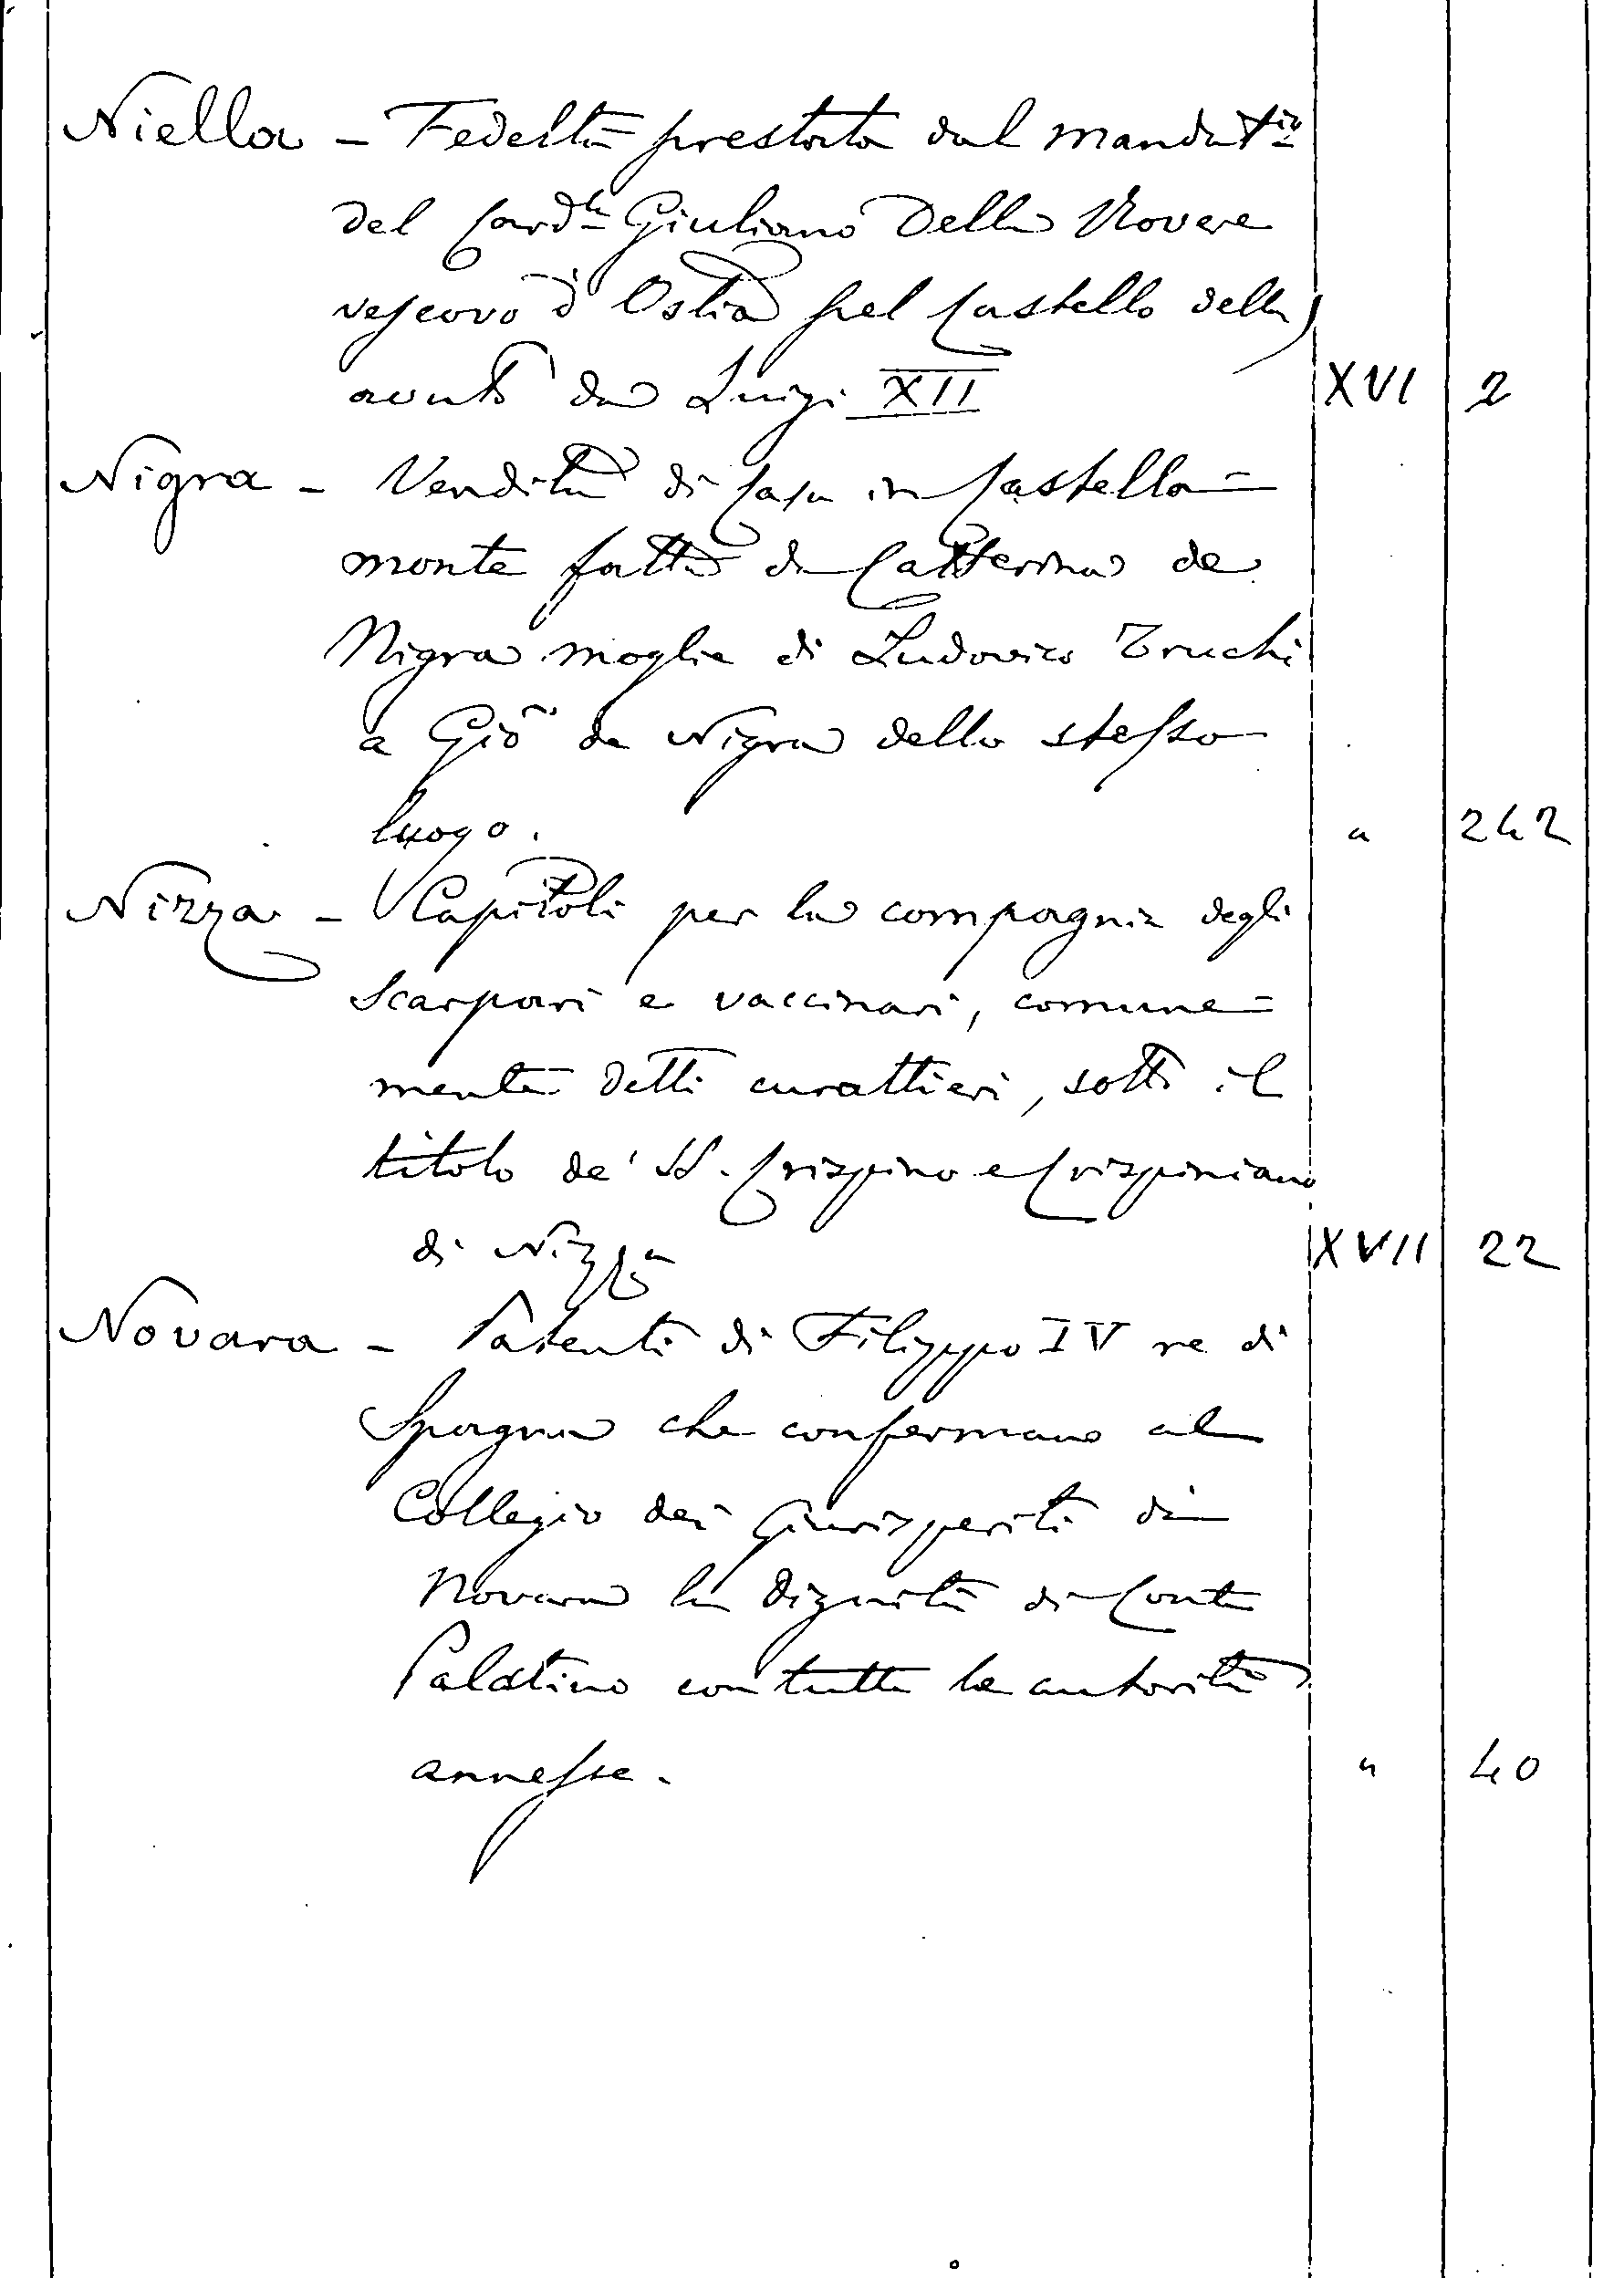 Niella - Fedeltà prestata dal mandat.io
del Card.le Giuliano Della Rovere
vescovo d'Ostia pel Castello della
avuto da Luigi XII XVI 2
Nigra - Vendita di casa in Castella=
monte fatta da Catterina de
Nigra moglie di Ludovico Truchi
a Giõ de Nigra dello stesso
luogo. " 242
Nizza - Capitoli per la compagnia degli
Scarpari e vaccinari, comune=
mente detti curattieri, sotto il
titolo de' SS. Crispino e Crispiniano
di Nizza XVII 22
Novara - Patenti di Filippo IV re di
Spagna che confermano al
Collegio dei Giurisperiti di
Novara la dignità di Conte
Palatino con tutte le autorità
annesse. " 40